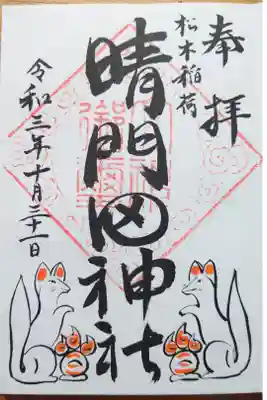 奉拝
松木稲荷
晴門田神社
令和三年十月三十一日